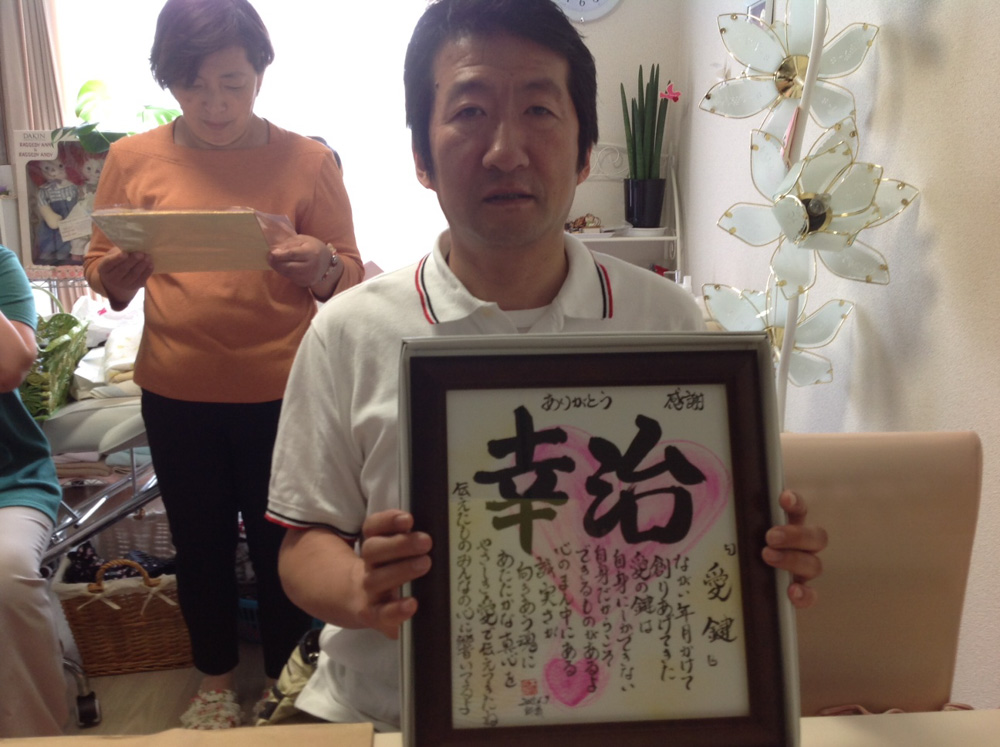 DAKIN
RAGGEDY ANN &
RAGGEDY ANDY
ありがとう
感謝
幸治
『愛鍵』
ながい年月かけて
創りあげてきた
愛の鍵は
自身にしかできない
自身だからこそ
できるものがあるさ
心のまん中にある
誠実さが
向きあう魂に
あたたかな真心を
やさしさと愛で伝えてきたね
伝えたものみんなの心に響いてるよ